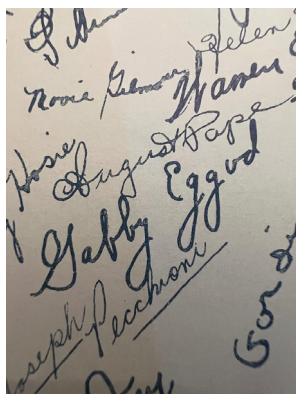 Helen
Novie Gilmour
Warren
Hosie
August Pape
Gabby Eggud
Joseph Pecchioni